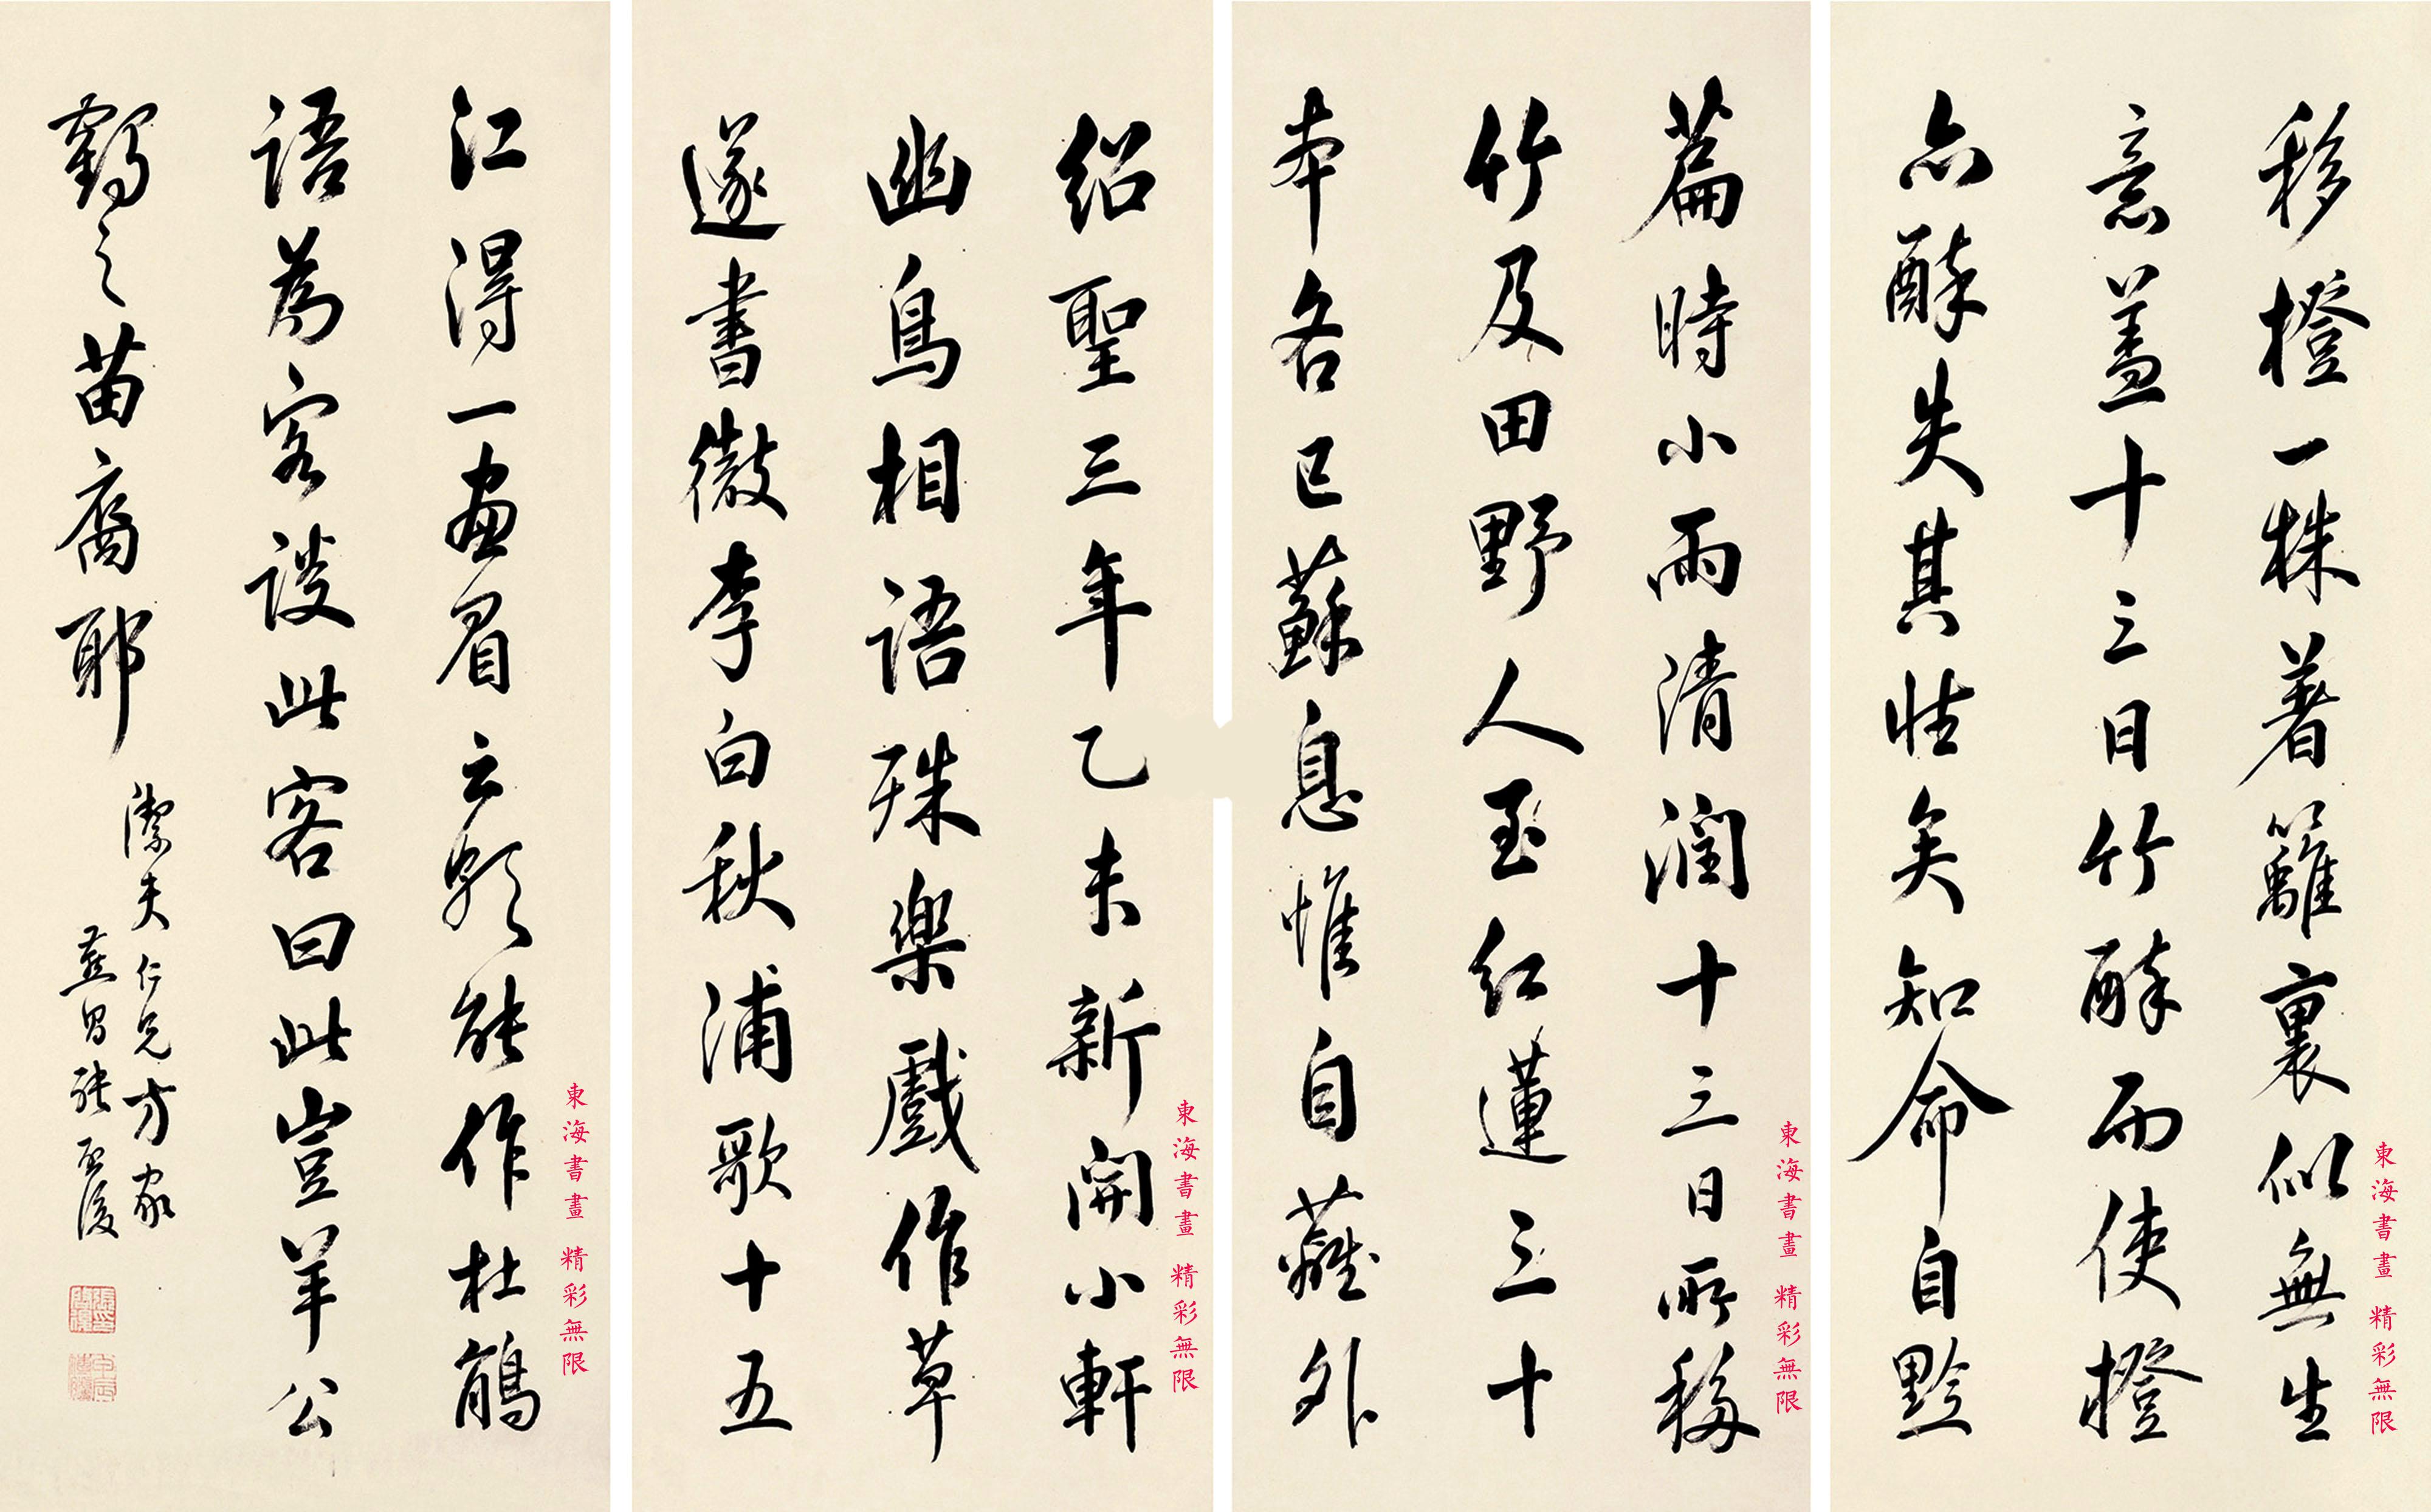 移橙一株著籬裏似無生
意蓋十三日竹醉而使橙
亦醉失其性矣知命自黔
東海書畫 精彩無限
篇時小雨清潤十三日所移
竹及田野人至紅蓮三十
本各已蘇息惟自蘺外
東海書畫 精彩無限
紹聖三年乙未新開小軒
幽鳥相語殊樂戲作草
遂書徹李白秋浦歌十五
東海書畫 精彩無限
江得一畫眉云頗能作杜鵑
語為客談此客曰此豈羊公
鶴之苗裔耶
潔夫仁兄方家
張啟後
東海書畫 精彩無限